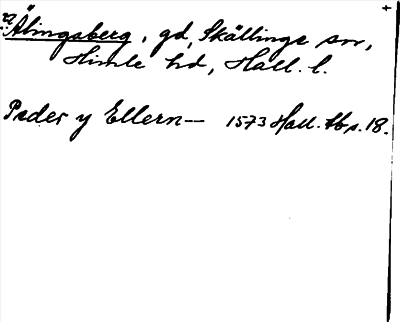 Älingsberg, gd, Skällinge sn,
Himle hd, Hall. l.
Peder y Ellern— 1573 Hall. tb s. 18.